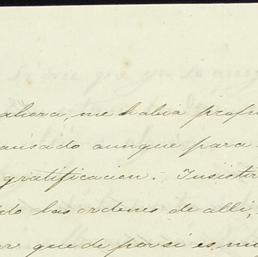 ahora, me habia prof
ansado aunque para
gratificacion. - Insistir
do las ordenes de alli,
que de por si es mu